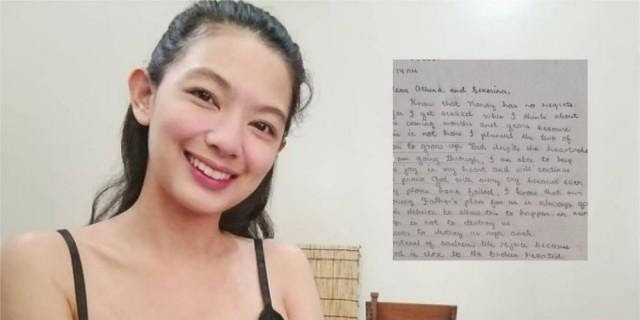 14 AM
Athena and Severina,
Know that Nanay has no regrets.
I get scared when I think about
coming months and years because
is not how I planned the two of
to grow up. But despite the heartache
am going through, I am able to keep
joy in my heart and will continue
praise God with every cry because even
plans have failed, I know that our
Father's plan for us is always go
desire to allow this to happen in our
is not to destroy us.
to destroy us
Instead of sadness, let's rejoice because
is close to the broken hearted